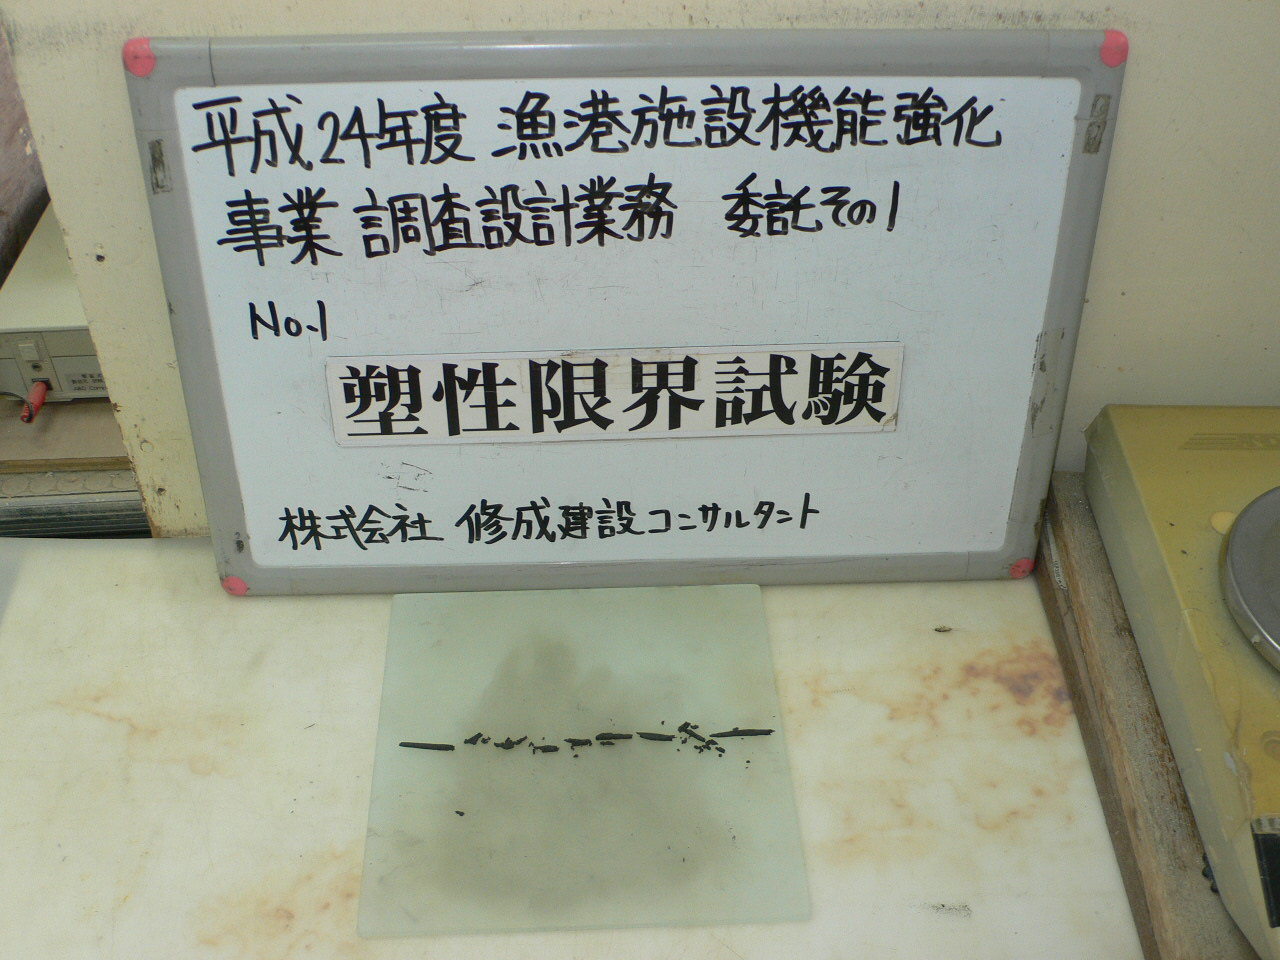 平成24年度 漁港施設機能強化
事業 調査設計業務 委託その1
No.1
塑性限界試験
株式会社 修成建設コンサルタント